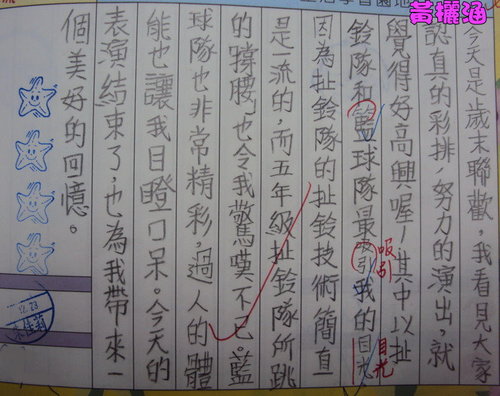 學習園地
今天是歲末聯歡，我看見大家
認真的彩排，努力的演出，就
覺得好高興喔！其中以扯
鈴隊和籃球隊最吸引我的目光
吸引
目光
因為扯鈴隊的扯鈴技術簡直
是一流的，而五年級扯鈴隊所跳
的撐腰，也令我驚嘆不已。藍
球隊也非常精彩，過人的體
能也讓我目瞪口呆。今天的
表演結束了，也為我帶來一
個美好的回憶。
12.23